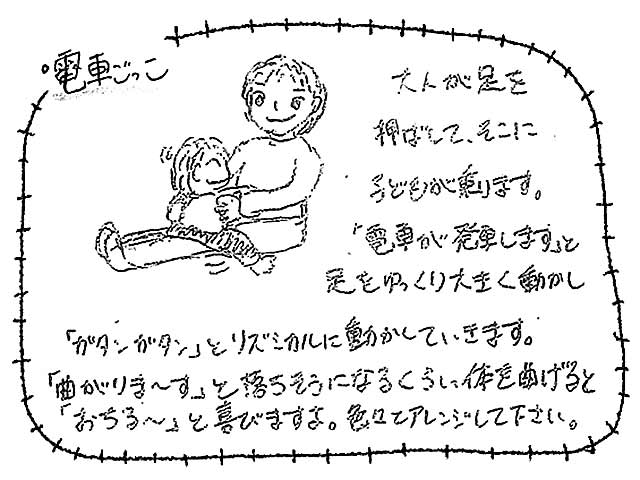 ・電車ごっこ
大人が足を
伸ばして、そこに
子どもが乗ります。
「電車が発車します」と
足をゆっくり大きく動かし
「ガタンガタン」とリズミカルに動かしていきます。
「曲がりま〜す」と落ちそうになるくらい体を曲げると
「おちる〜」と喜びますよ。色々とアレンジして下さい。